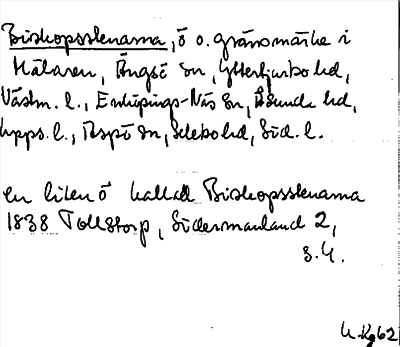 Biskopsstenarna, ö o. gränsmärke i
Mälaren, Ängsö sn, Ytterbjurbo hd,
Västm. l., Enköpings-Näs sn, Åsunda hd,
Upps. l., Aspö sn, Selebo hd, Söd. l.
en liten ö kallad Biskopsstenarna
1838 Tollstorp, Södermanland 2,
s. 4.